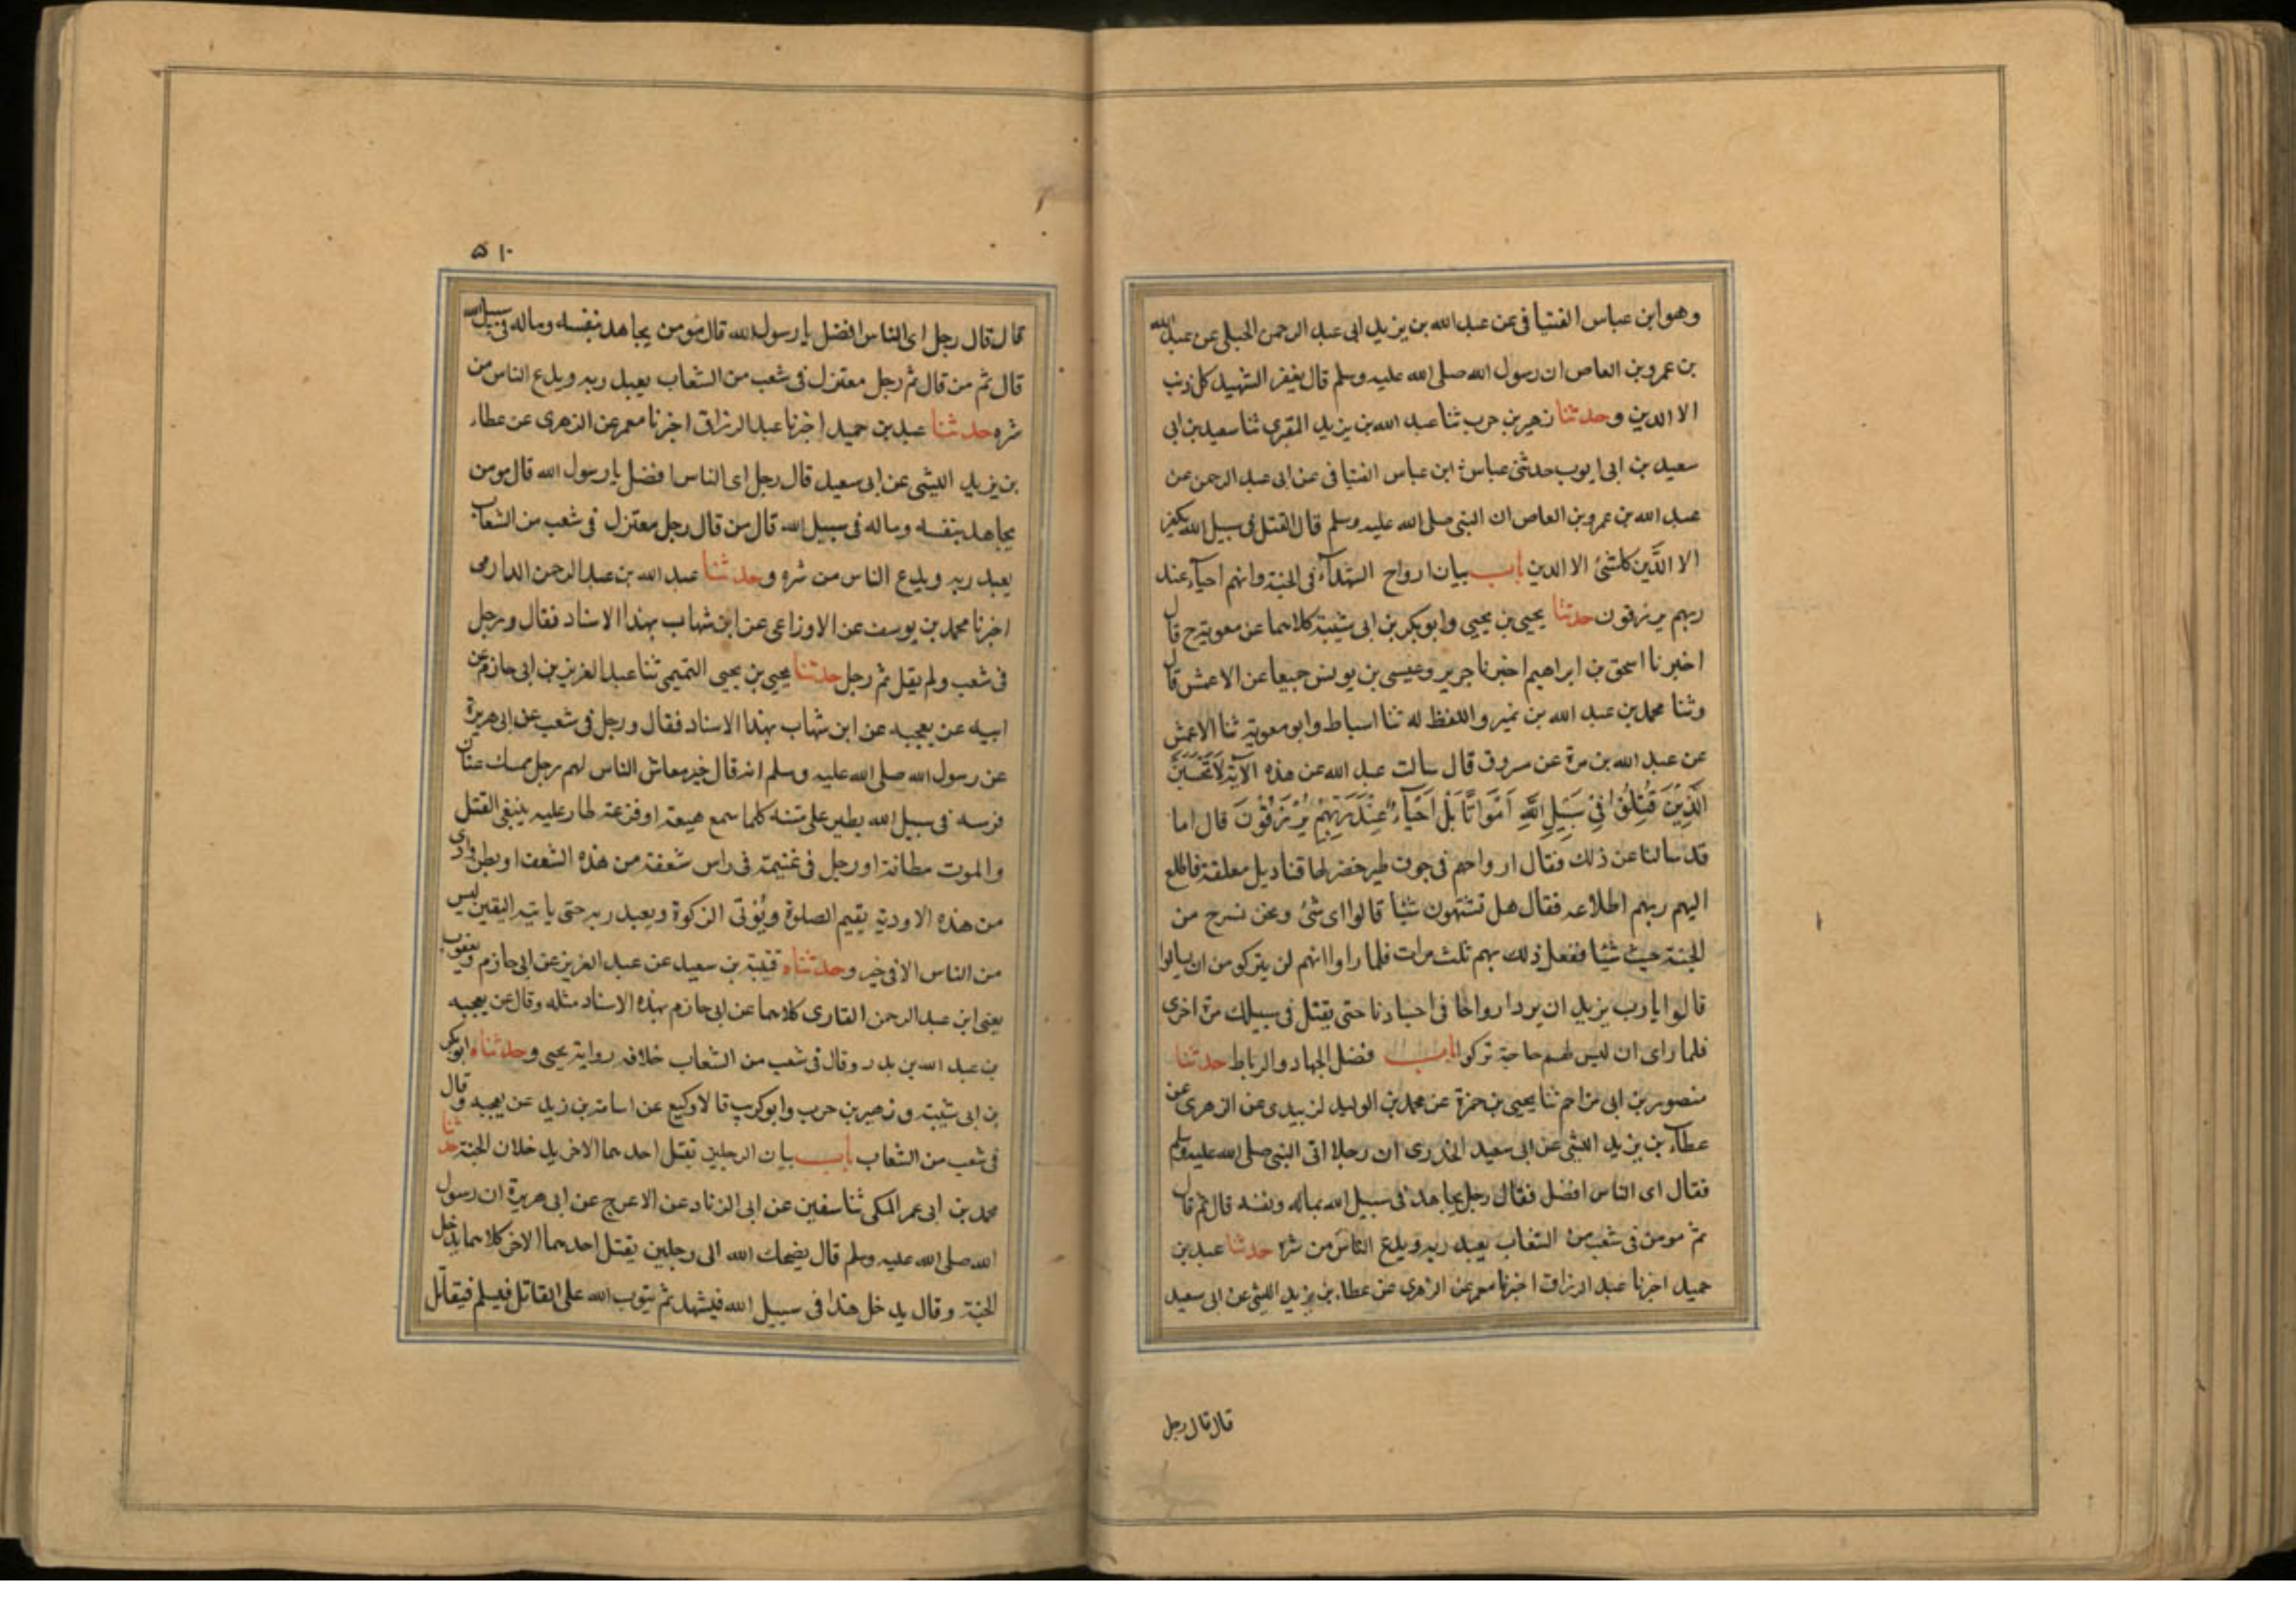 وهو ابن عباس القتبانى عن عبد الله بن يزيد ابى عبد الرحمن الحبلى عن عبد الله
بن عمرو بن العاص ان رسول الله صلى الله عليه وسلم قال يغفر الشهيد كل ذنب
الا الدين وحدثنا زهير بن حرب ثنا عبد الله بن يزيد المقرى ثنا سعيد بن ابى
سعيد بن ابى ايوب حدثنى عباس ابن عباس القتبانى عن ابى عبد الرحمن عن
عبد الله بن عمرو بن العاص ان النبى صلى الله عليه وسلم قال القتل فى سبيل الله يكفر
الا الدَّين كلشئ الا الدين باب بيان ارواح الشهدآء فى الجنة وانهم احيآء عند
ربهم يرزقون حدثنا يحيى بن يحيى وابو بكر بن ابى شيبة كلاهما عن معوية ح قال
اخبرنا اسحق بن ابراهيم اخبرنا جرير وعيسى بن يونس جميعا عن الاعمش قال
وثنا محمد بن عبد الله بن نمير واللفظ له ثنا اسباط وابو معوية ثنا الاعمش
عن عبد الله بن مرة عن مسروق قال سالت عبد الله عن هذه الآية لَا تَحْسَبَنَّ
الَّذِيْنَ قُتِلُوْا فِيْ سَبِيْلِ اللهِ اَمْوَاتًا بَلْ اَحْيَآءٌ عِنْدَ رَبِّهِمْ يُرْزَقُوْنَ قال اما
قد سالنا عن ذلك فقال ارواحهم فى جوف طير خضر لها قناديل معلقة فاطلع
اليهم ربهم اطلاعه فقال هل تشتهون شيئا قالوا اى شئ ونحن نسرح من
الجنة حيث شئنا ففعل ذلك بهم ثلث مرات فلما راوا انهم لن يتركو من ان يسالوا
قالوا يا رب يزيد ان يرد ارواحنا فى اجسادنا حتى يقتل فى سبيلك مرة اخرى
فلما راى ان ليس لهم حاجة تركوا باب فضل الجهاد والرباط حدثنا
منصور بن ابى مزاحم ثنا يحيى بن حمزة عن محمد بن الوليد الزبيدى عن الزهرى عن
عطآء بن يزيد الليثى عن ابى سعيد الخدرى ان رجلا اتى النبى صلى الله عليه وسلم
فقال اى الناس افضل فقال رجل يجاهد فى سبيل الله بماله ونفسه قال ثم قال
ثم مومن فى شعب من الشعاب يعبد ربه ويدع الناس من شره حدثنا عبد بن
حميد اخبرنا عبد الرزاق اخبرنا معمر عن الزهرى عن عطاء بن يزيد الليثى عن ابى سعيد
قال قال رجل
۵۱۰
قال قال رجل اى الناس افضل يا رسول الله قال مومن يجاهد بنفسه وماله فى سبيل الله
قال ثم من قال ثم رجل معتزل فى شعب من الشعاب يعبد ربه ويدع الناس من
شره حدثنا عبد بن حميد اخبرنا عبد الرزاق اخبرنا معمر عن الزهرى عن عطاء
بن يزيد الليثى عن ابى سعيد قال رجل اى الناس افضل يا رسول الله قال مومن
يجاهد بنفسه وماله فى سبيل الله قال من قال رجل معتزل فى شعب من الشعاب
يعبد ربه ويدع الناس من شره وحدثنا عبد الله بن عبد الرحمن الدارمى
اخبرنا محمد بن يوسف عن الاوزاعى عن ابن شهاب بهذا الاسناد فقال ورجل
فى شعب ولم يقل ثم رجل حدثنا يحيى بن يحيى التميمى ثنا عبد العزيز بن ابى حازم عن
ابيه عن بعجه عن ابن شهاب بهذا الاسناد فقال ورجل فى شعب عن ابى هريرة
عن رسول الله صلى الله عليه وسلم انه قال خير معاش الناس لهم رجل ممسك عنان
فرسه فى سبيل الله يطير على متنه كلما سمع هيعة او فزعة طار عليه ينبغى القتل
والموت مظانه او رجل فى غنيمة فى راس شعفة من هذه الشعف او بطن وادى
من هذه الاودية يقيم الصلوة ويُوتى الزكوة ويعبد ربه حتى ياتيه اليقين ليس
من الناس الا فى خير وحدثناه قتيبة بن سعيد عن عبد العزيز عن ابى حازم ويعقوب
يعنى ابن عبد الرحمن القارى كلاهما عن ابى حازم بهذه الاسناد مثله وقال عن بعجه
بن عبد الله بن بدر وقال فى شعب من الشعاب خلاف رواية يحيى وحدثناه ابو بكر
بن ابى شيبة وزهير بن حرب وابو كريب قالا وكيع عن اسامة بن زيد عن بعجه وقال
فى شعب من الشعاب باب بيان الرجلين يقتل احدهما الاخر يدخلان الجنة حدثنا
محمد بن ابى عمر المكى ثنا سفين عن ابى الزناد عن الاعرج عن ابى هريرة ان رسول
الله صلى الله عليه وسلم قال يضحك الله الى رجلين يقتل احدهما الاخر كلاهما يدخل
الجنة وقال يدخل هذا فى سبيل الله فيشهد ثم يتوب الله على القاتل فيسلم فيقاتل